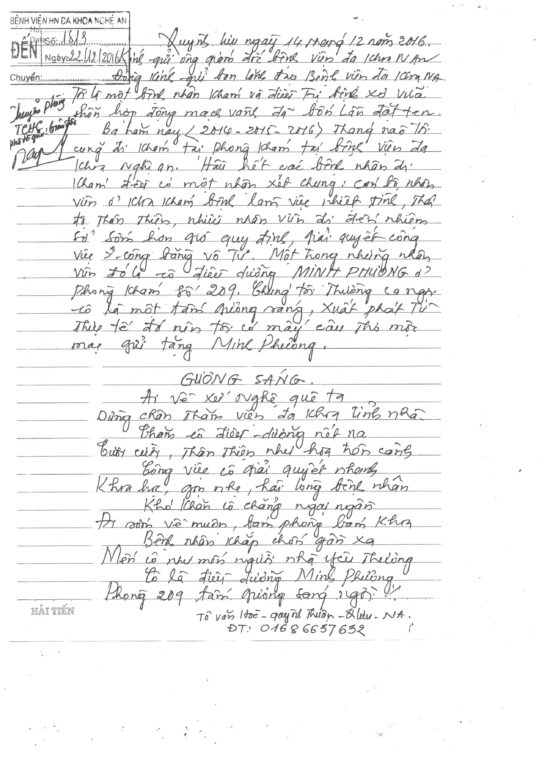 BỆNH VIỆN HN ĐA KHOA NGHỆ AN
ĐẾN
Số: 1813
Ngày 22/12/2016
Chuyển:
Chuyển phòng
TCHC
Quỳnh lưu ngày 14 tháng 12 năm 2016.
Kính gửi ông giám đốc bệnh viện đa khoa N An
Đồng kính gửi ban lãnh đạo Bệnh viện đa khoa NA
Tôi là một bệnh nhân khám và điều trị bệnh xơ vữa
thân hợp động mạch vành đã bốn lần đặt ten.
Ba năm nay (2014-2015-2016) tháng nào tôi
cũng đi khám tại phòng khám tại bệnh viện đa
khoa Nghệ an. Hầu hết các bệnh nhân đi
khám đều có một nhận xét chung: cán bộ nhân
viên ở khoa khám bệnh làm việc nhiệt tình, thái
độ thân thiện, nhiều nhân viên đi đến nhiệm
sở sớm hơn giờ quy định, giải quyết công
việc công bằng vô tư. Một trong những nhân
viên đó là cô điều dưỡng MINH PHƯỢNG ở
phòng khám số 209. Chúng tôi thường ca ngợi
cô là một tấm gương sáng, xuất phát từ
thực tế đó nên tôi có mấy câu thơ mộc
mạc gửi tặng Minh Phượng.
GƯƠNG SÁNG.
Ai về xứ nghệ quê ta
Dừng chân thăm viện đa khoa tỉnh nhà
Thăm cô điều dưỡng nết na
Tươi cười, thân thiện như hoa trên cành
Công việc cô giải quyết nhanh
Khoa học, gọn nhẹ, hài lòng bệnh nhân
Khó khăn cô chẳng ngại ngần
Đi sớm về muộn, bám phòng bám khoa
Bệnh nhân khắp chốn gần xa
Mến cô như mến người nhà yêu thương
Cô là điều dưỡng Minh Phượng
Phòng 209 tấm gương sáng ngời!
HẢI TIẾN
Tô văn Hoè - quỳnh Thuận - Q lưu - NA.
ĐT: 01686637632